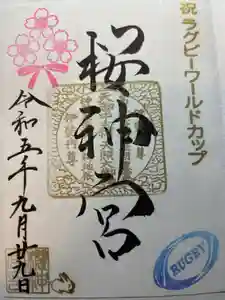 祝 ラグビーワールドカップ
桜神宮
令和五年九月廿九日
RUGBY